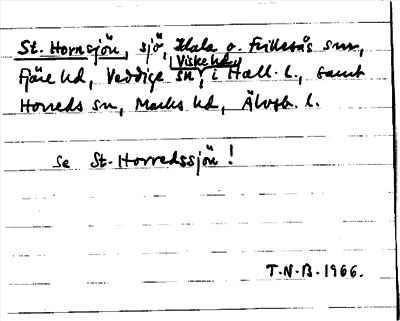 St. Hornsjön, sjö, Idala o. Frillesås snr,
Fjäre hd, Veddige sn, Viske hd, i Hall. l., samt
Horreds sn, Marks hd, Älvsb. l.
se St. Horredssjön!
T.N.B. 1966.